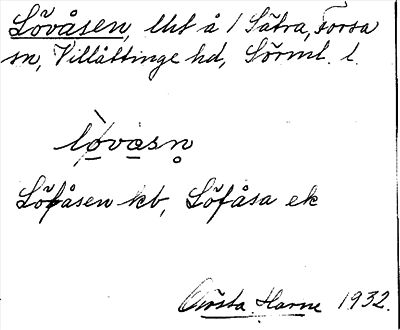 Lövåsen, lht å 1 Sätra, Forsa
sn, Villåttinge hd, Sörml. l.
lo̱va̱sn̥
Löfåsen kb, Löfåsa ek
Harne 1932.